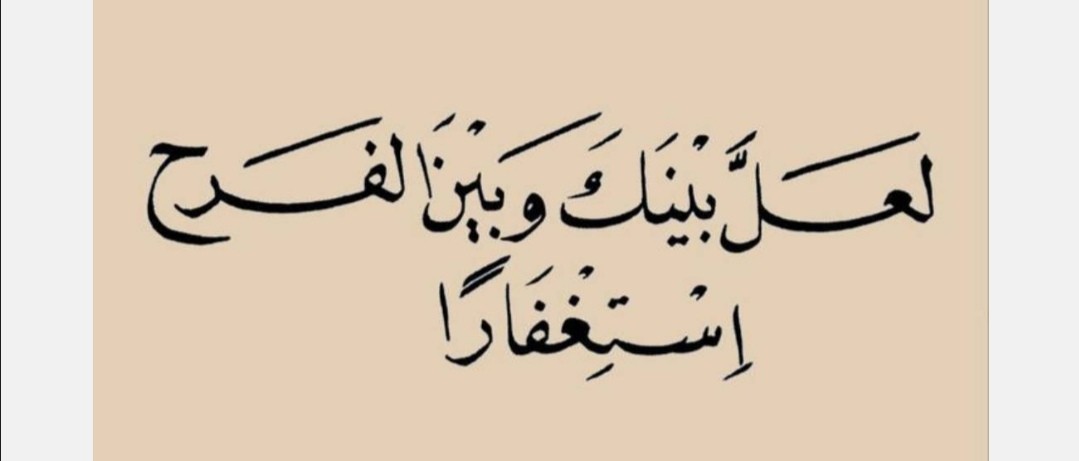 لعَلَّ بيْنَكَ وبَيْنَ الفَرح
اِسْتِغْفَارًا